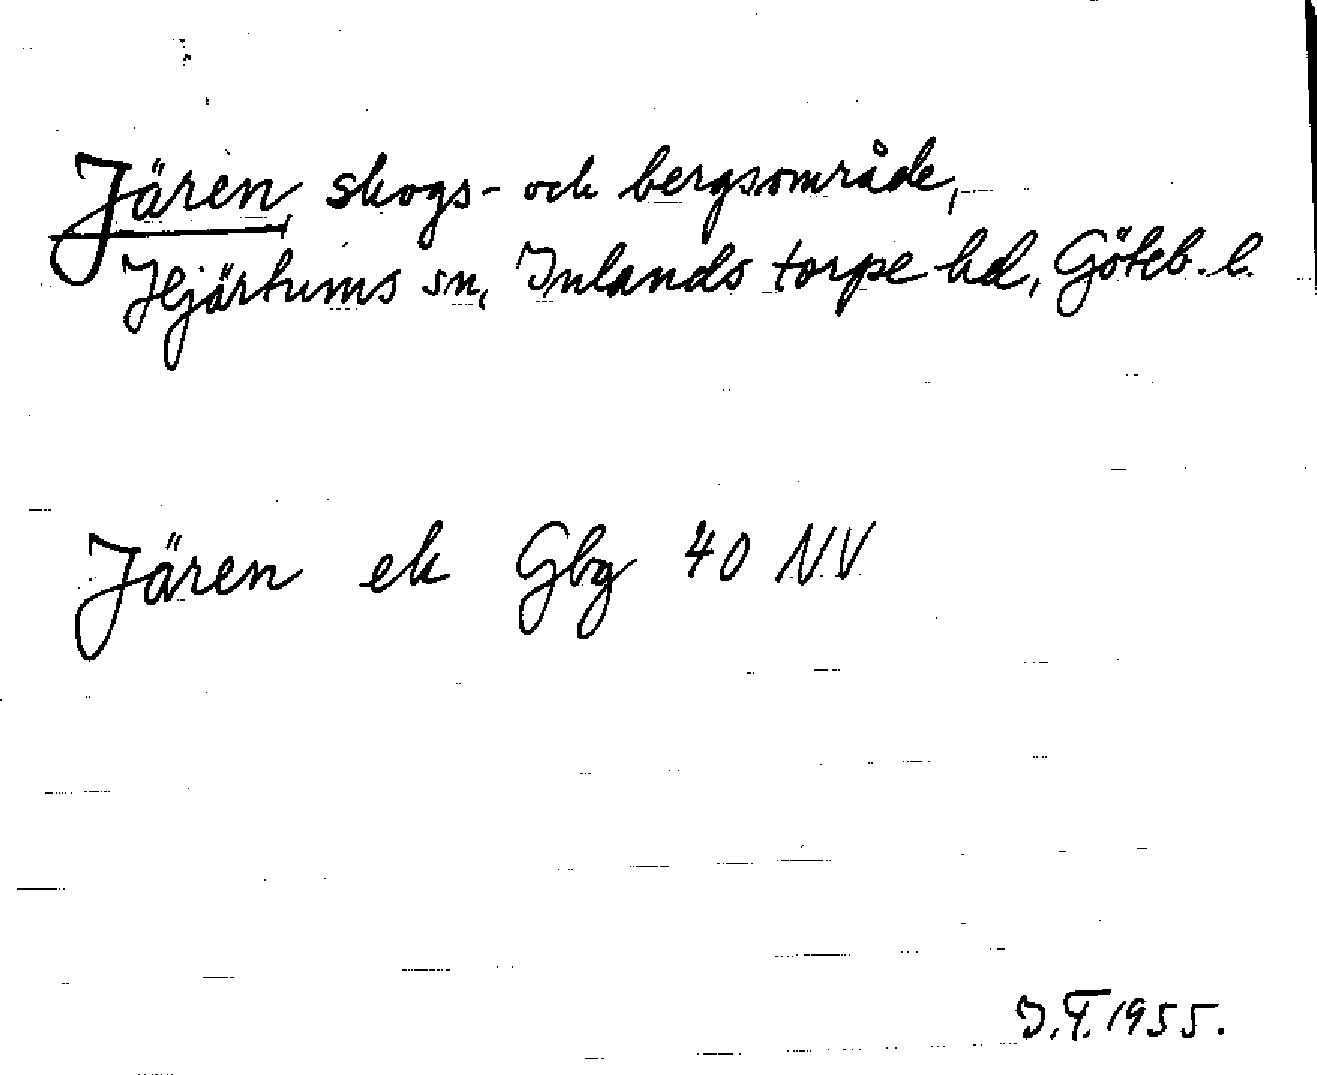 Jären, skogs- och bergsområde,
Hjärtums sn, Inlands torpe hd, Göteb. l.
Jären ek Gbg 40 NV
I.F. 1955.